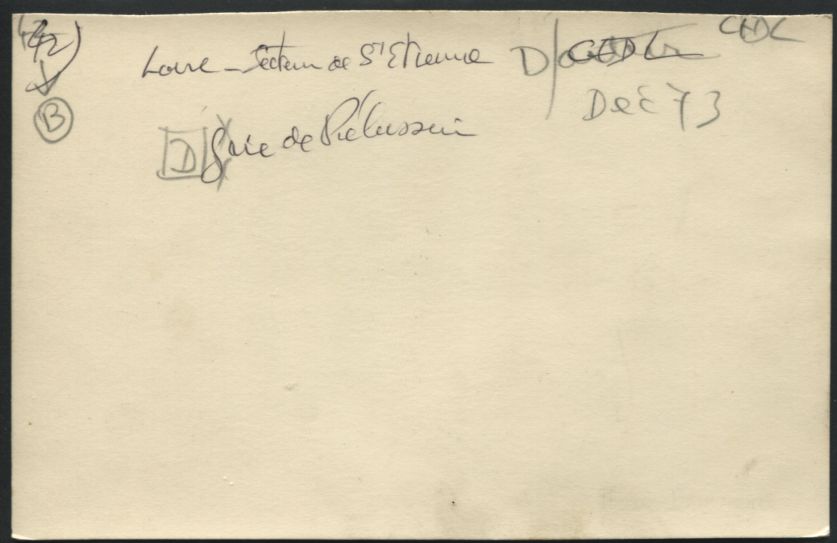 (42) Loire - Secteur de St Etienne D/ CEDL CEDL
Dec 73
B
D Gare de Pélussin